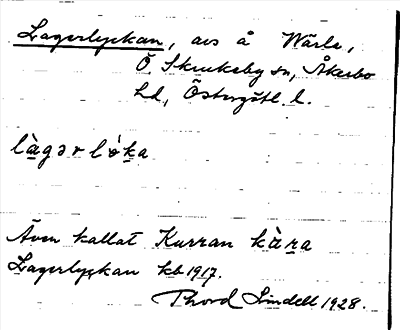 Lagerlyckan, avs å Wärle,
Ö. Skrukeby sn, Åkerbo
hd, Östergötl. l.
làgər lỏ́ka
Även kallat Kurran kàra
Lagerlyckan kb 1917.
Thord Lindell 1928.